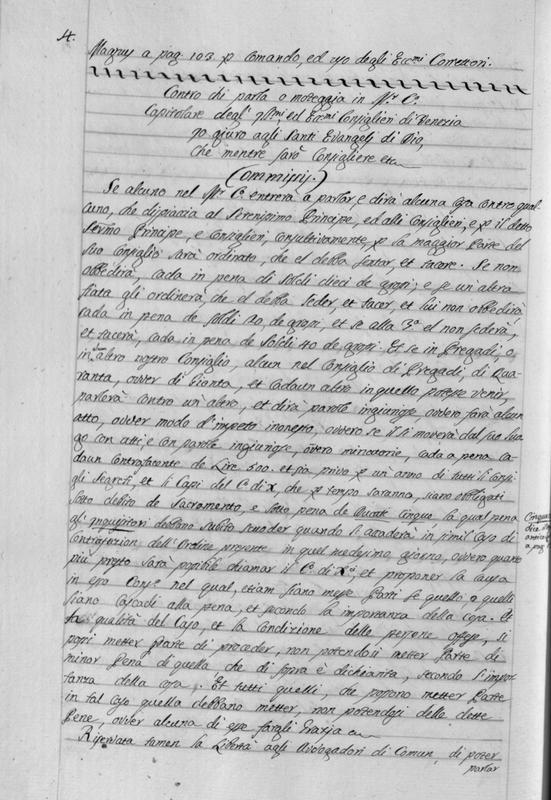 4.
Magnus a pag. 103 p comando, ed uso degli Ecc.mi Correttori.
Contro chi parla o motteggia in M.r C.
Capitolare degl' Ill.mi, ed Ecc.mi Consiglieri di Venezia
go giuro agli Santi Evangelj di Dio,
che mentre sarò Consigliere etc.
(Ommissis.)
Se alcuno nel M.r C. entrerà a parlar, e dirà alcuna cosa contro qual
cuno, che dispiaccia al Serenissimo Principe, ed alli Consiglieri, e p il detto
Ser.mo Principe, e Consiglieri, consultivamente, p la maggior Parte del
suo Consiglio sarà ordinato, che el debba sentar, et tacere. Se non
obbedirà, cada in pena di Soldi dieci de grossi; e se un'altra
fiata gli ordinerà, che el debba seder, et tacer, et lui non obbedirà,
cada in pena de Soldi 20, de grossi, et se alla 3.a el non sederà,
et tacerà, cada in pena de Soldi 40 de grossi. Et se in Pregadi, o
in altro nostro Consiglio, alcun nel Consiglio di Pregadi, di Qua-
ranta, ovver di Zionta, et cadaun altro in quello potesse venir,
parlerà contro un altro, et dirà parole ingiuriose ovvero farà alcun
atto, ovver modo d'impeto inonesto, ovvero se il si moverà dal suo luo
go con atti e con parole ingiuriose, ovvero minatorie, cada a pena ca-
daun contrafacente de Lire 500. et sia privo p un anno di tutti li Consi
gli Segreti, et li Capi del C. di X, che p tempo saranno, siano obbligati
sotto debito de Sacramento, e sotto pena de Ducati cinque, la qual pena
gl' inquisitori debbano subito scuoder quando si accaderà in simil caso di
Contrafazion dell'Ordine presente in quel medesimo giorno, ovvero quanto
più presto sarà possibile chiamar il C. di X., et proponer la causa
in esso Cons.o nel qual, etiam siano messe Parti se quello o quelli
siano cascadi alla pena, et secondo la importanza della cosa. Et
la qualità del Caso, et la Condizione delle persone offese, si
possi metter Parte di proceder, non potendosi metter Parte di
minor pena di quella che di sopra è dichiarita, secondo l'impor
tanza della cosa. Et tutti quelli, che possono metter Parte
in tal caso quella debbano metter, non potendosi delle dette
Pene, ovver alcuna di esse fargli Grazia etc.
Riservata tamen la Libertà agli Avvogadori di Comun, di poter
parlar